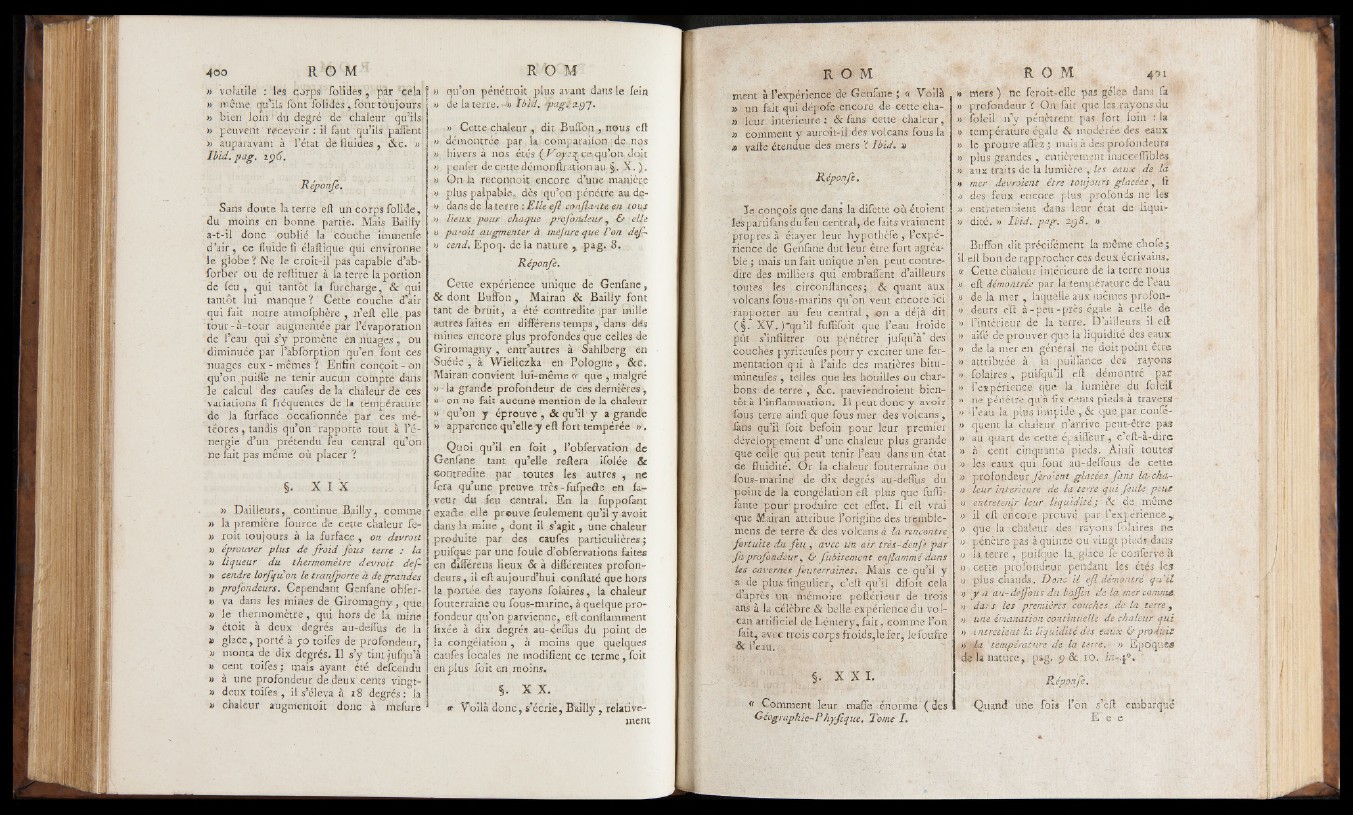 400 R O M
» volatile : les corps ſolides, par cela
» même qu'ils ſont ſolides, ſont toujours
» bien loin du degré de chaleur qu'ils
» peuvent recevoir : il faut qu'ils paſſent
» auparavant à l'état de fluides, &c. »
Ibid. pag. 296.
Réponſe.
Sans doute la terre eſt un corps ſolide,
du moins en bonne partie. Mais Bailly
a-t-il donc oublié la couche immenſe
d'air, ce fluide ſi élaſtique qui environne
le globe ? Ne le croit-il pas capable d'ab-
ſorber ou de reſtituer à la terre la portion
de feu, qui tantôt la ſurcharge, & qui
tantôt lui manque ? Cette couche d'air
qui fait notre atmoſphère, n'eſt elle pas
tour-à-tour augmentée par l'évaporation
de l'eau qui s'y promène en nuages, ou
diminuée par l'abſorption qu'en font ces
nuages eux-mêmes ? Enfin conçoit-on
qu'on puiſſe ne tenir aucun compte dans
le calcul des cauſes de la chaleur de ces
variations ſi fréquentes de la température
de la ſurface occaſionnée par ces mé-
téores, tandis qu'on rapporte tout à l'é-
nergie d'un prétendu feu central qu'on
ne ſait pas même où placer ?
§. X I X
» Dailleurs, continue Bailly, comme
» la première ſource de cette chaleur ſe-
» roit toujours à la ſurface, on devroit
» éprouver plus de froid ſous terre : la
» liqueur du thermomètre devroit deſ-
» cendre lorſqu'on le tranſporte à de grandes
» profondeurs. Cependant Genſane obſer-
» va dans les mines de Giromagny, que
» le thermomètre, qui hors de la mine
» étoit à deux degrés au-deſſus de la
» glace, porté à 50 toiſes de profondeur,
» monta de dix degrés. Il s'y tint juſqu'à
» cent toiſes ; mais ayant été deſcendu
» à une profondeur de deux cents vingt-
» deux toiſes, il s'éleva à 18 degrés : la
» chaleur augmentoit donc à meſure
R O M
» qu'on pénétroit plus avant dans le ſein
» de la terre. » Ibid. page 297.
» Cette chaleur, dit Buffon, nous eſt
» démontrée par la comparaiſon de nos
» hivers à nos étés (Voyez ce qu'on doit
» penſer de cette démonſtration au §. X.).
» On la reconnoît encore d'une manière
» plus palpable, dès qu'on pénétre au de-
» dans de la terre : Elle eſt conſtante en tous
» lieux pour chaque profondeur, & elle
» paroît augmenter à meſure que l'on deſ-
» cend. Epoq. de la nature, pag. 8.
Réponſe.
Cette expérience unique de Genſane,
& dont Buffon, Mairan & Bailly font
tant de bruit, a été contredite par mille
autres faites en différens temps, dans des
mines encore plus profondes que celles de
Giromagny, entr'autres à Sahlberg en
Suède, à Wieliczka en Pologne, &c.
Mairan convient lui-même « que, malgré
» la grande profondeur de ces dernières,
» on ne fait aucune mention de la chaleur
» qu'on y éprouve, & qu'il y a grande
» apparence qu'elle y eſt fort tempérée ».
Quoi qu'il en ſoit, l'obſervation de
Genſane tant qu'elle reſtera iſolée &
contredite par toutes les autres, ne
ſera qu'une preuve très-ſuſpecte en fa-
veur du feu central. En la ſuppoſant
exacte elle prouve ſeulement qu'il y avoit
dans la mine, dont il s'agit, une chaleur
produite par des cauſes particulières ;
puiſque par une foule d'obſervations faites
en différens lieux & à différentes profon-
deurs, il eſt aujourd'hui conſtaté que hors
la portée des rayons ſolaires, la chaleur
ſouterraine ou ſous-marine, à quelque pro-
fondeur qu'on parvienne, eſt conſtamment
fixée à dix degrés au-deſſus du point de
la congélation, à moins que quelques
cauſes locales ne modifient ce terme, ſoit
en plus ſoit en moins.
§. X X.
« Voilà donc, s'écrie, Bailly, relative-
ment
R O M
ment à l'expérience de Genſane ; « Voilà
» un fait qui dépoſe encore de cette cha-
» leur intérieure : & ſans cette chaleur,
» comment y auroit-il des volcans ſous la
» vaſte étendue des mers ? Ibid. »
Réponſe.
Je conçois que dans la diſette où étoient
les partiſans du feu central, de faits vraiment
propres à étayer leur hypothèſe, l'expé-
rience de Genſane dut leur être fort agréa-
ble ; mais un fait unique n'en peut contre-
dire des milliers qui embraſſent d'ailleurs
toutes les circonſtances ; & quant aux
volcans ſous-marins qu'on veut encore ici
rapporter au feu central, on a déjà dit
(§. XV.) qu'il ſuffiſoit que l'eau froide
pût s'inſiltrer ou pénétrer juſqu'à des
couches pyriteuſes pour y exciter une fer-
mentation qui à l'aide des matières bitu-
mineuſes, telles que les houilles ou char-
bons de terre, &c. parviendroient bien-
tôt à l'inflammation. Il peut donc y avoir
ſous terre ainſi que ſous mer des volcans,
ſans qu'il ſoit beſoin pour leur premier
développement d'une chaleur plus grande
que celle qui peut tenir l'eau dans un état
de fluidité. Or la chaleur ſouterraine ou
ſous-marine de dix degrés au-deſſus du
point de la congélation eſt plus que ſuffi-
ſante pour produire cet effet. Il eſt vrai
que Mairan attribue l'origine des tremble-
mens de terre & des volcans à la rencontre
fortuite du feu, avec un air très-denſe par
ſa profondeur, & ſubitement enflammé dans
les cavernes ſouterraines. Mais ce qu'il y
a de plus ſingulier, c'eſt qu'il diſoit cela
d'après un mémoire poſtérieur de trois
ans à la célèbre & belle expérience du vol-
can artificiel de Lémery, fait, comme l'on
ſait, avec trois corps froids, le fer, le ſoufre
& l'eau.
§. X X I.
« Comment leur maſſe énorme (des
Géographie-Phyſique. Tome I.
R O M 401
» mers) ne ſeroit-elle pas gelée dans ſa
» profondeur ? On ſait que les rayons du
» ſoleil n'y pénètrent pas fort loin : la
» température égale & modérée des eaux
» le prouve aſſez ; mais à des profondeurs
» plus grandes, entièrement inacceſſibles
» aux traits de la lumière, les eaux de la
» mer devroient être toujours glacées, ſi
» des feux encore plus profonds ne les
» entretenoient dans leur état de liqui-
» dité. » Ibid. pag. 298. »
Buffon dit préciſément la même choſe ;
il eſt bon de rapprocher ces deux écrivains.
« Cette chaleur intérieure de la terre nous
» eſt démontrée par la température de l'eau
» de la mer, laquelle aux mêmes profon-
» deurs eſt à-peu-près égale à celle de
» l'intérieur de la terre. D'ailleurs il eſt
» aiſé de prouver que la liquidité des eaux
» de la mer en général ne doit point être
» attribuée à la puiſſance des rayons
» ſolaires, puiſqu'il eſt démontré par
» l'expérience que la lumière du ſoleil
» ne pénètre qu'à ſix cents pieds à travers
» l'eau la plus limpide, & que par conſé-
» quent la chaleur n'arrive peut-être pas
» au quart de cette épaiſſeur, c'eſt-à-dire
» à cent cinquante pieds. Ainſi toutes
» les eaux qui ſont au-deſſous de cette
» profondeur ſeroient glacées ſans la cha-
» leur intérieure de la terre qui ſeule peut
» entretenir leur liquidité ; & de même
» il eſt encore prouvé par l'expérience,
» que la chaleur des rayons ſolaires ne
» pénètre pas à quinze ou vingt pieds dans
» la terre, puiſque la glace ſe conſerve à
» cette profondeur pendant les étés les
» plus chauds. Donc il eſt démontré qu'il
» y a au-deſſous du baſſin de la mer comme
» dans les premières couches de la terre,
» une émanation continuelle de chaleur qui
» entretient la liquidité des eaux & produit
» la température de la terre. » Époques
de la nature, pag. 9 & 10. in-4°.
Réponſe.
Quand une fois l'on s'eſt embarqué
E e e